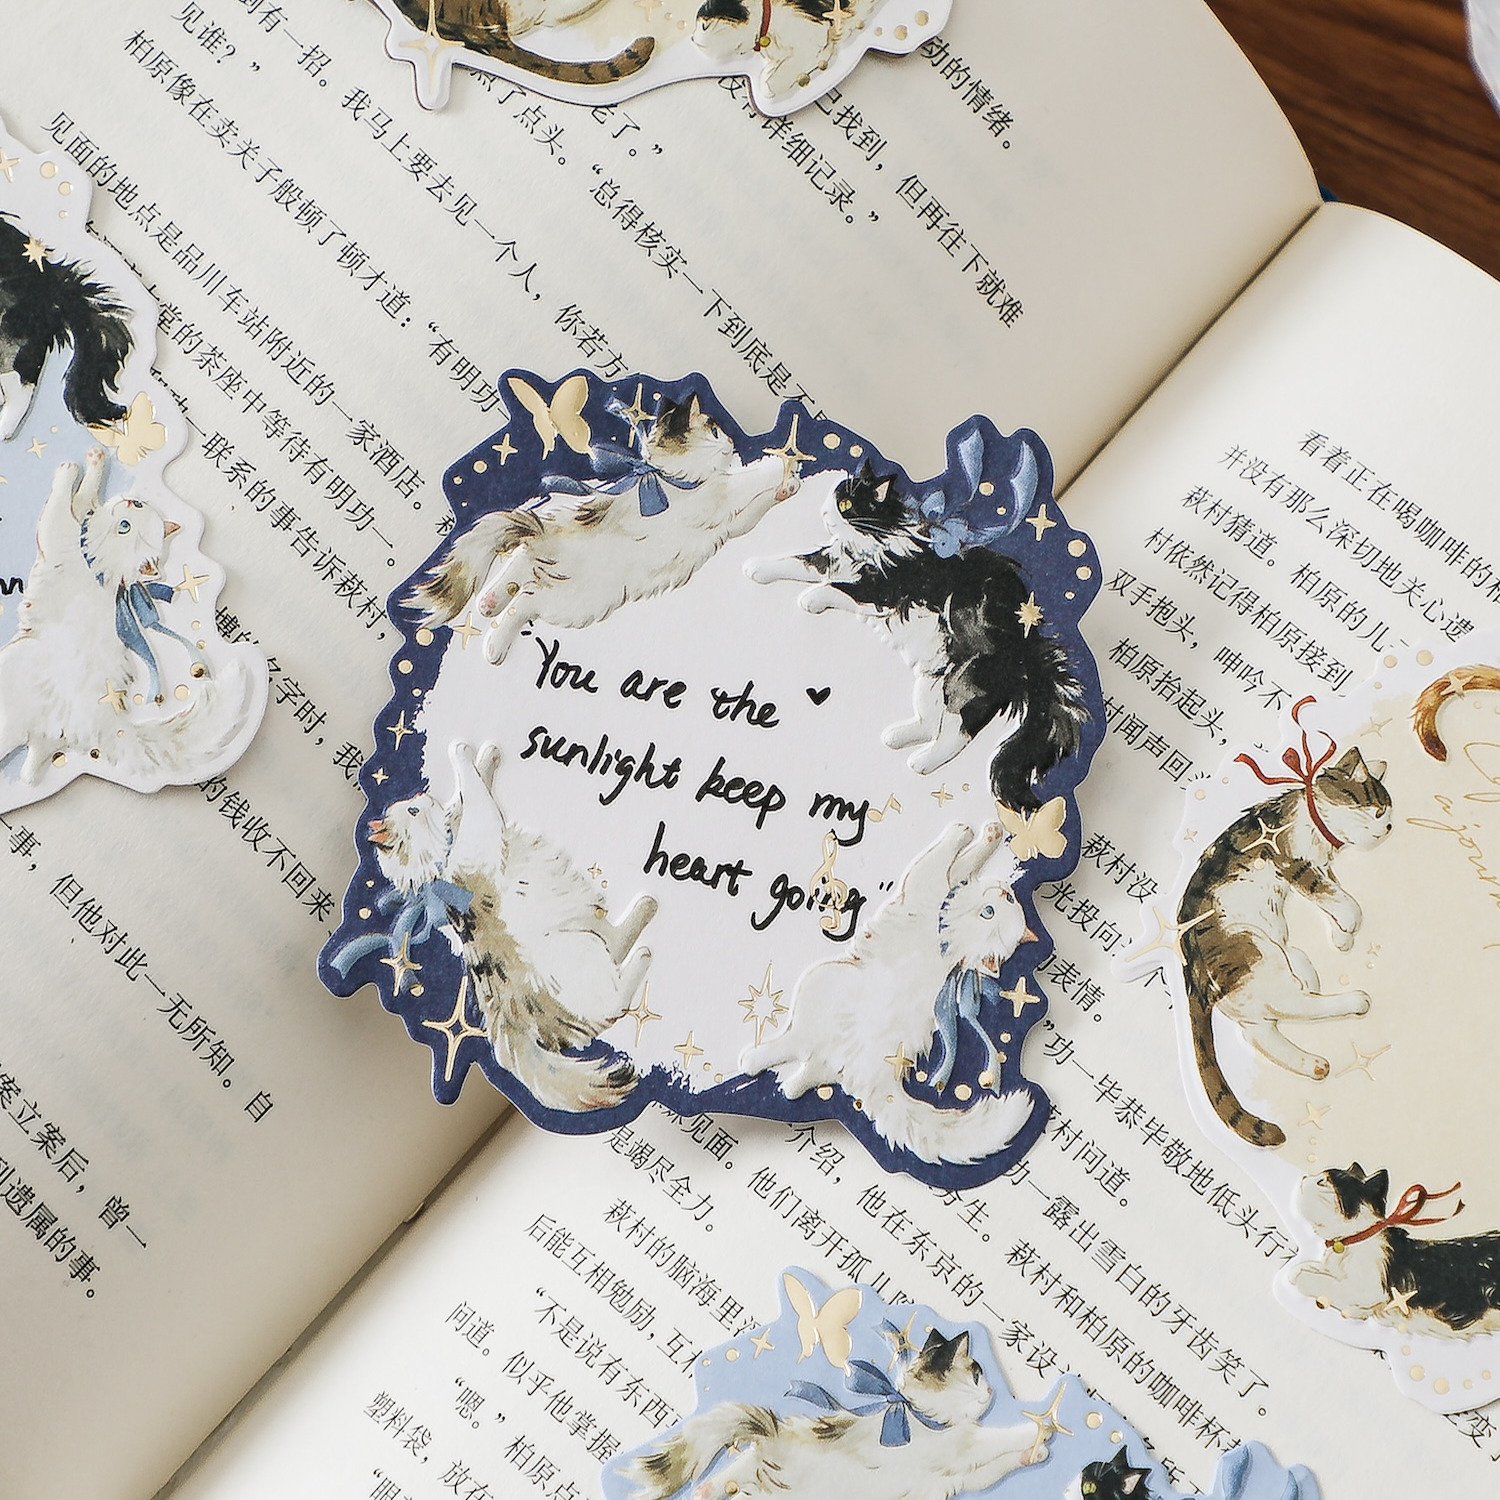 到有一招。我马上要去见一个人，你若方
见谁？”
柏原像在卖关子般顿了顿才道：“有明功一
见面的地点是品川车站附近的一家酒店。
堂的茶座中等待有明功一。
功一联系的事告诉萩村，
名字时，我
的钱收不回来
事，但他对此一无所知。自
案立案后，曾一
遗属的事。
动的情绪。
已找到，但再往下就难
没有详细记录。”
老了。”
点了点头。“总得核实一下到底是不
"You are the ♥
sunlight keep my
heart going"
看着正在喝咖啡的柏
并没有那么深切地关心遗
萩村猜道。柏原的儿
村依然记得柏原接到
双手抱头，呻吟不
柏原抬起头，
村闻声回
萩村没
光投向
的表情。
”功一毕恭毕敬地低头行
萩村问道。
功一露出雪白的牙齿笑了。
萩村和柏原的咖啡杯
介绍，他在东京的一家设
妹见面。他们离开孤儿院
是竭尽全力。
萩村的脑海里浮
后能互相勉励，互相
“不是说有东西
问道。似乎他掌握
“嗯。”柏原点
塑料袋，放在